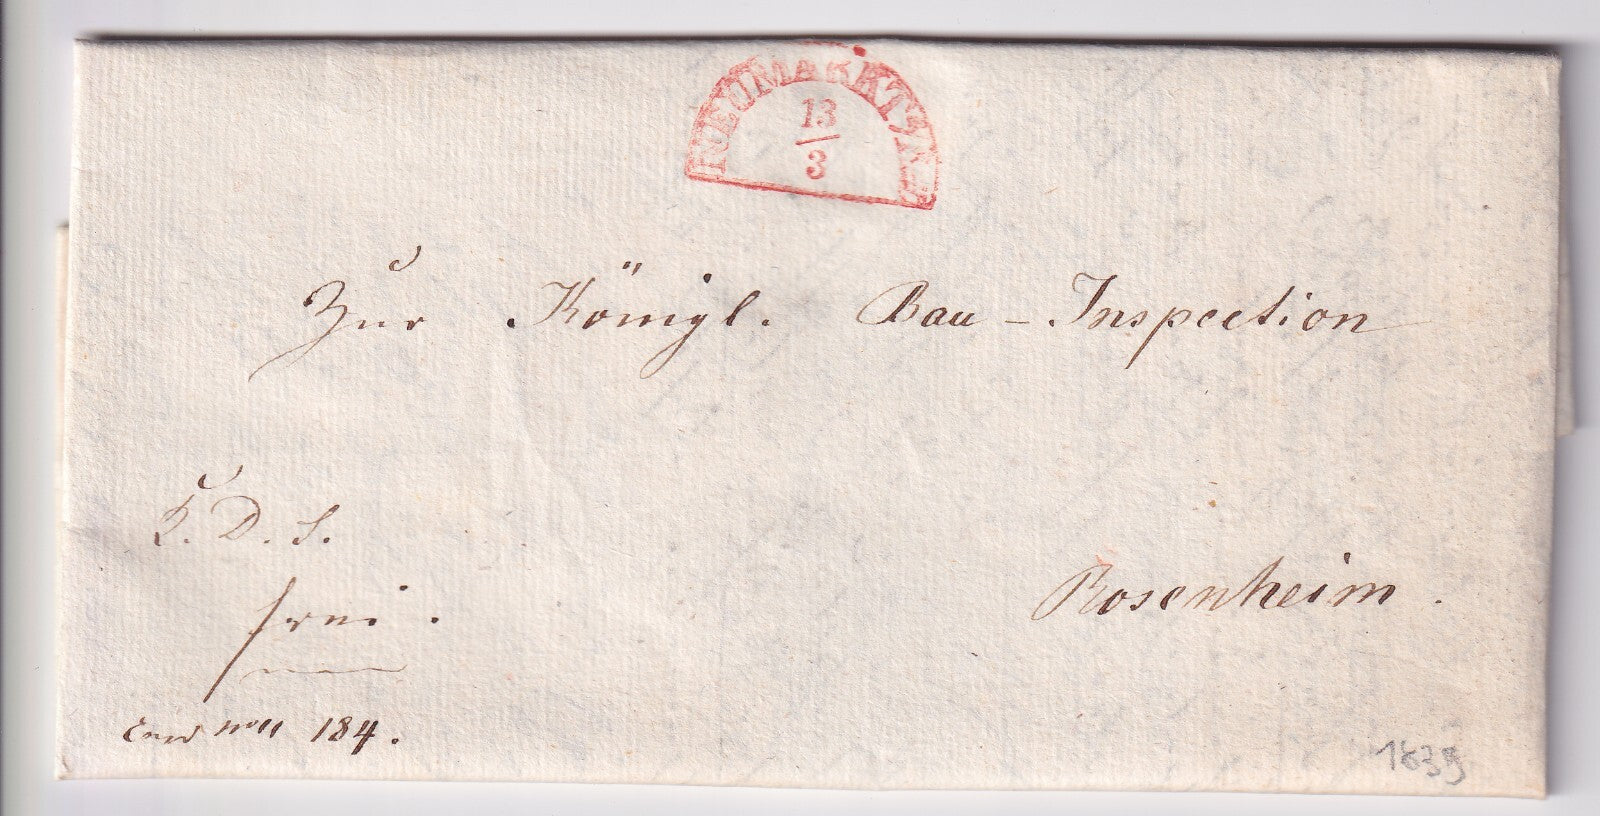 NEUMARKT
13
3
Zur Königl. Bau-Inspection
K. D. S.
frei.
Rosenheim.
184.
1839